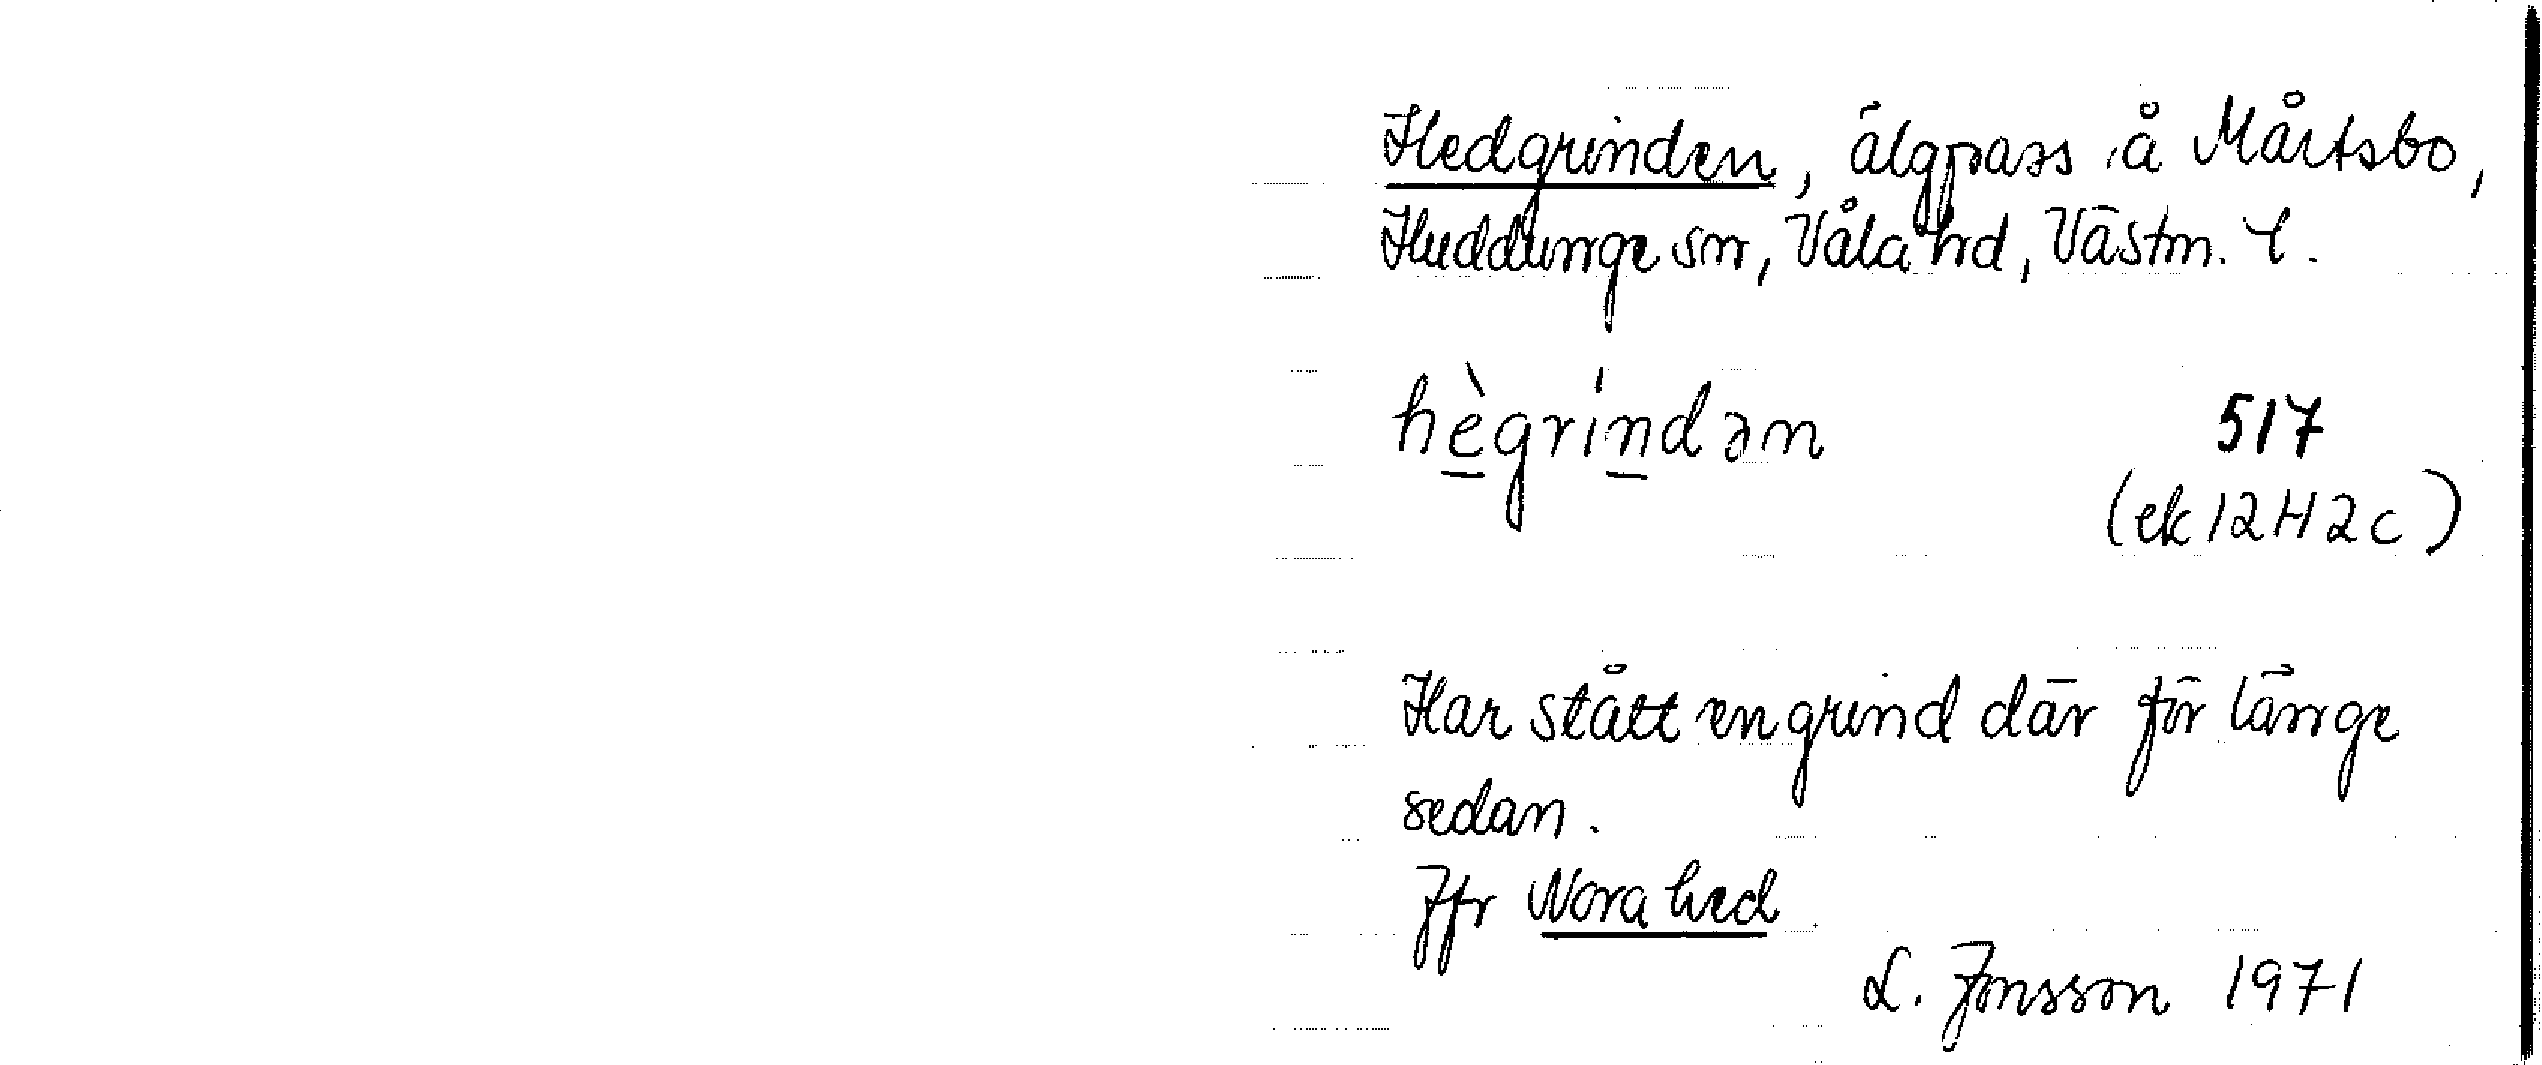 Hedgrinden, älgpass å Mårtsbo,
Huddunge sn, Våla hd, Västm. l.
hègríndən 517
(ek 12H2c)
Har stått en grind där för länge
sedan.
Jfr Nora hed
L. Jonsson 1971